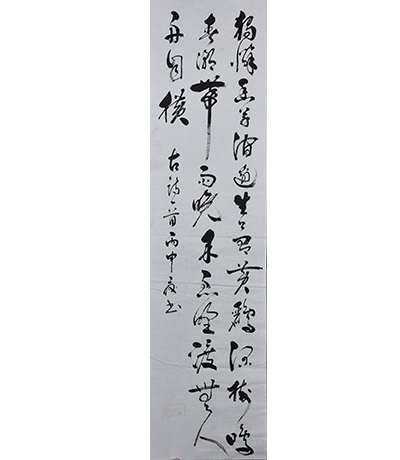 獨憐幽草澗邊生上有黃鸝深樹鳴
春潮帶雨晚來急野渡無人
舟自橫
古詩一首丙申夏書